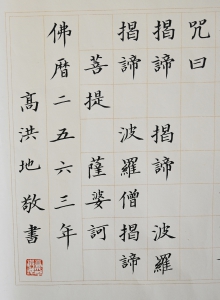 咒曰
揭諦 揭諦 波羅
揭諦 波羅僧揭諦
菩提 薩婆訶
佛暦二五六三年
髙洪地敬書